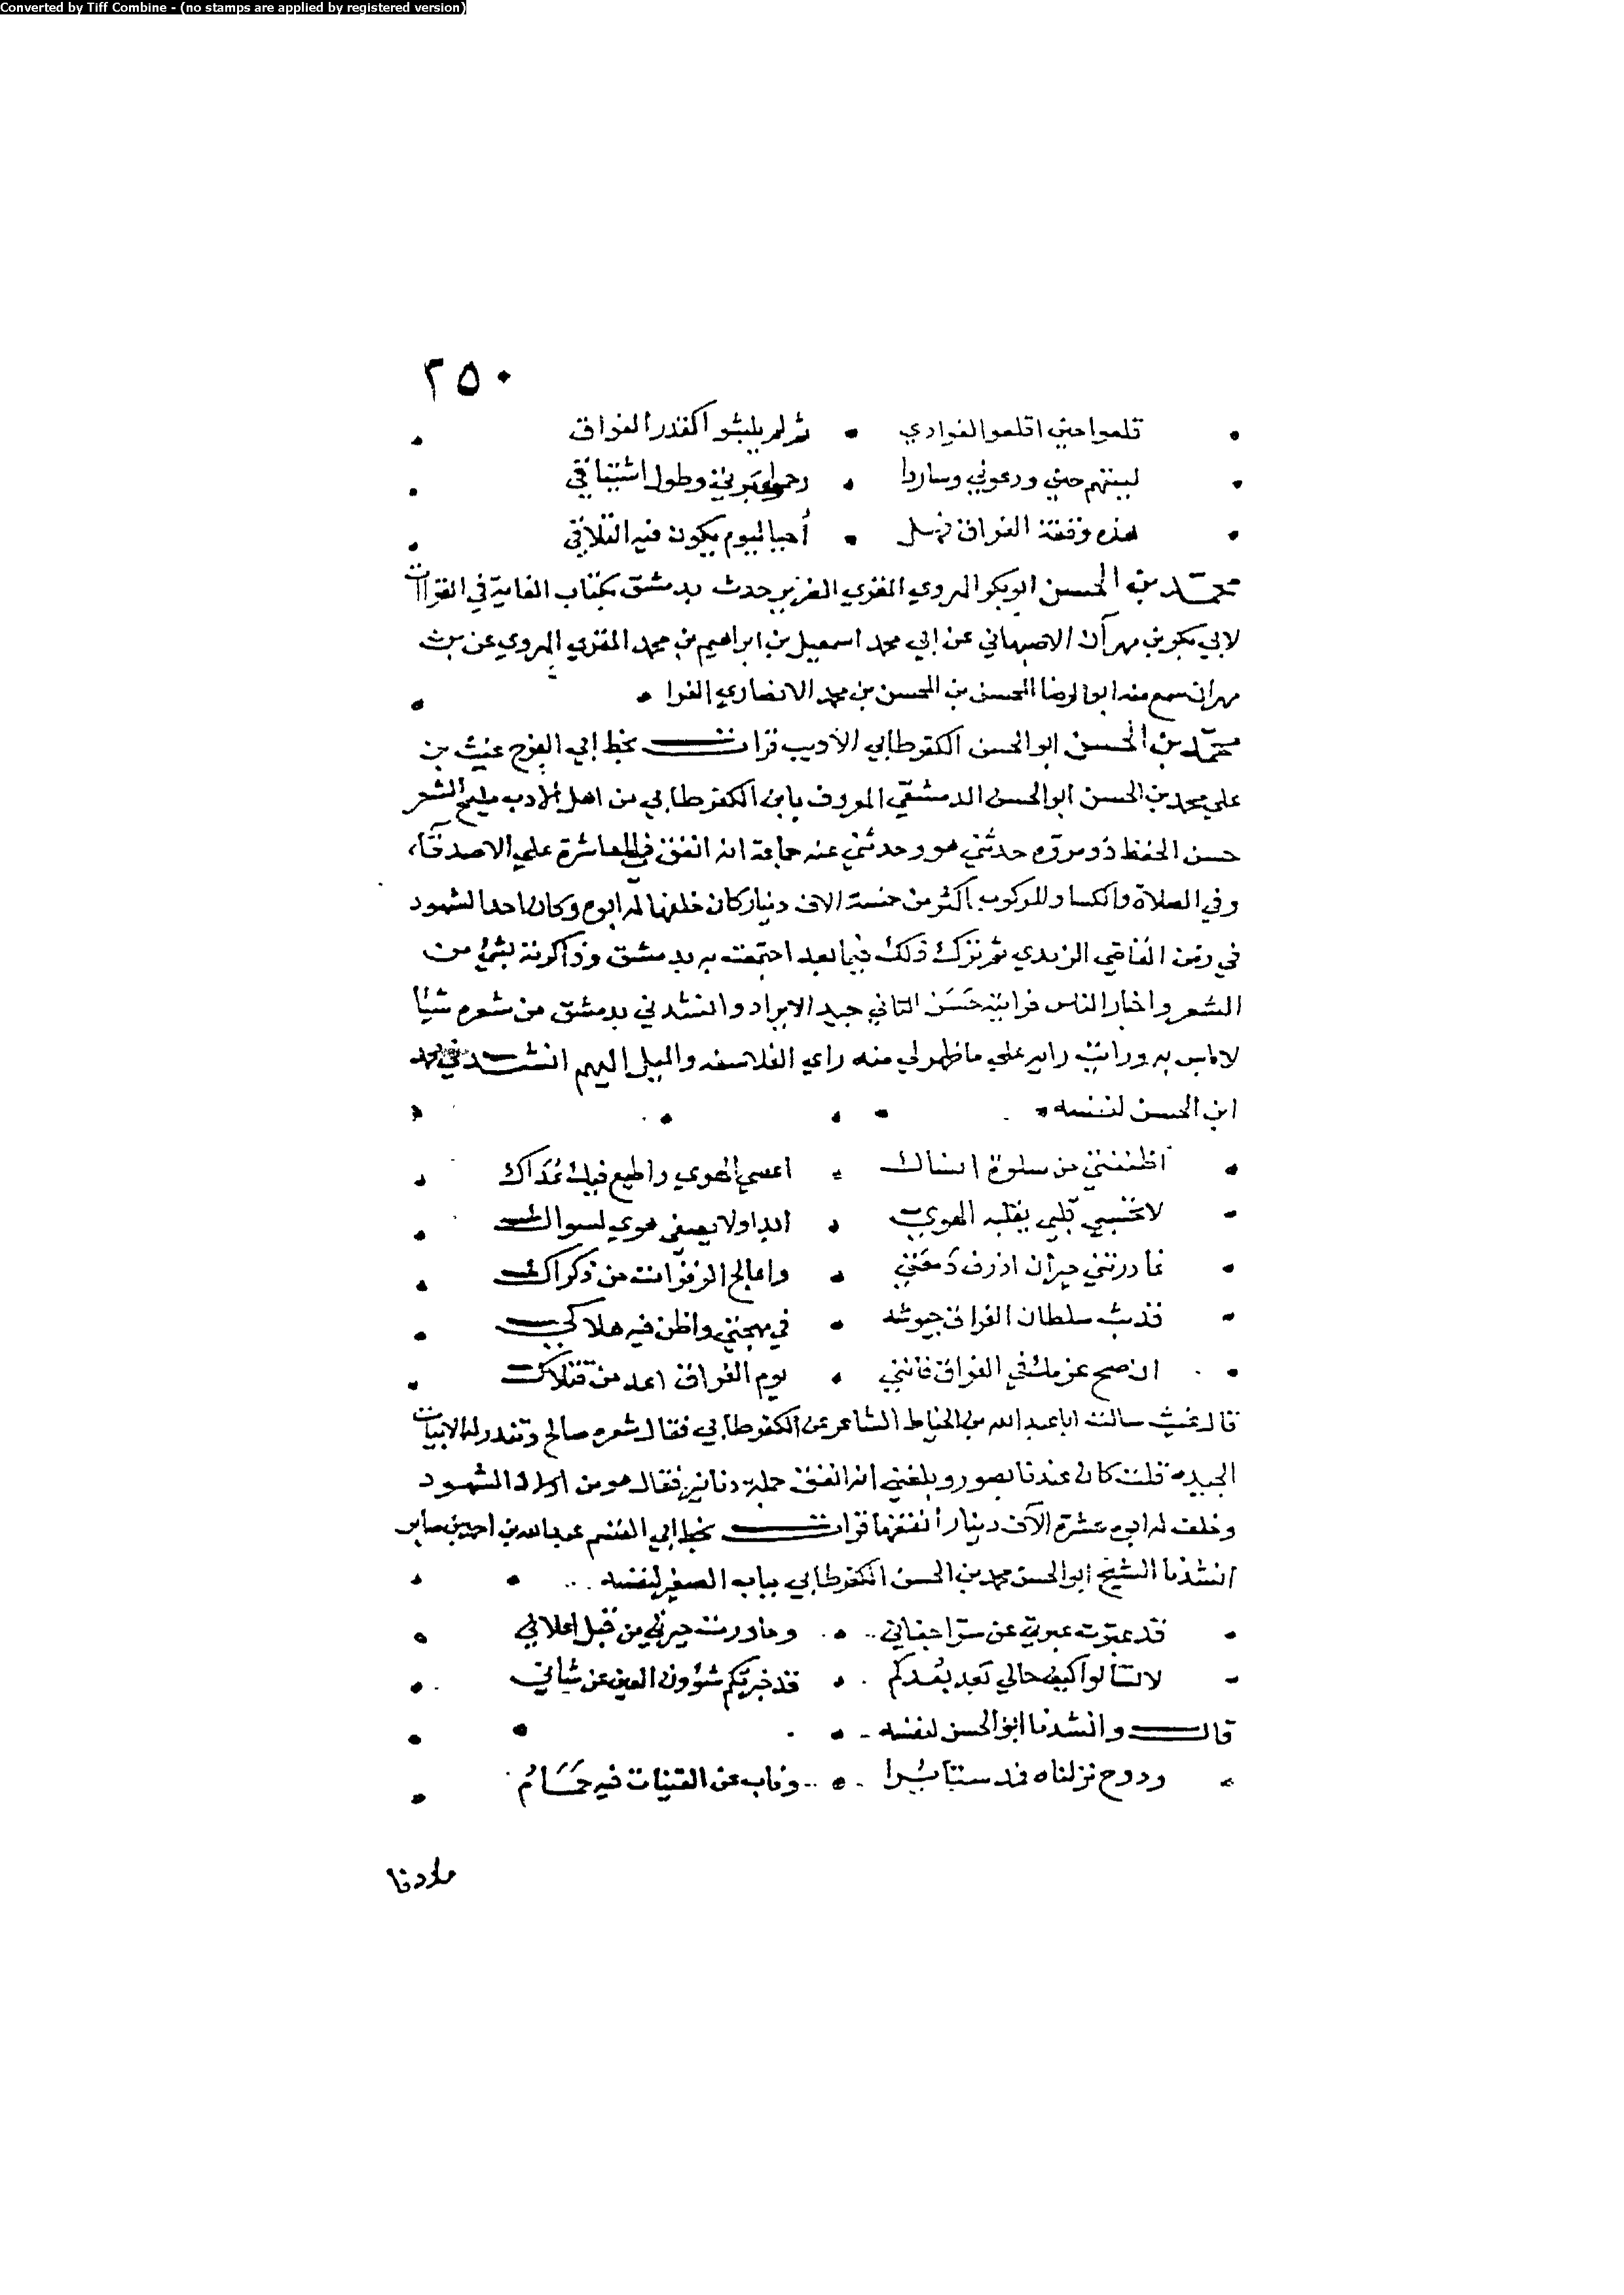 Converted by Tiff Combine - (no stamps are applied by registered version)
٢٥٠
قلعوا حين اقلعوا لفوادي • ثم لم يلبثوا كقدر الفواق
ليتهم حين ودعوني وساروا • رحموا عبرتي وطول اشتياقي
هذه وقفة الفراق فهل • أحيا ليوم يكون فيه التلاقي
محمد بن الحسن ابو بكر الهروي المقري الضرير حدث بدمشق بكتاب الغاية في القراآت
لابي بكر بن مهرآن الاصبهاني عن ابي محمد اسمعيل بن ابراهيم بن محمد المقري الهروي عن بن
مهران سمع منه ابو الرضا المحسن بن المحسن بن محمد الانصاري الفرا •
محمد بن الحسن ابو الحسن الكفرطابي الأديب قرات بخط ابي الفرج غيث بن
علي محمد بن الحسن ابو الحسن الدمشقي المعروف بابن الكفرطابي من اهل الأدب مليح الشعر
حسن الحفظ ذو مروّه حدثني هو وحدثني عنه جماعة انه انفق في المعاشرة علي الاصدقآء
وفي الصلاة والكسا والمركوب اكثر من خمسة الاف دينار كان خلفها له ابوه وكان احد الشهود
في زمن القاضي الزيدي ثم ترك ذلك فيما بعد اجتمعت به بدمشق وذاكرته بشئ من
الشعر واخبار الناس فرايته حَسَن التاني جيد الايراد وانشدني بدمشق من شعره شيأ
لا باس به ورايت رايه علي ما ظهر لي منه راي الفلاسفه والميل اليهم انشدني محمد
ابن الحسن لنفسه •
اظننتني من سلوة انساك • اعصي الهوي واطيع فيك عُداك
لا تحسبي قلبي يقلبه الهوي • ابدا ولا يصفي هوي لسواك
غادرتني حيرأن اذرف دَمعَتي • واعالج الزفرات من ذكراك
قد بث سلطان الفراق جيوشه • في مهجتي واظن فيه هلاكي
ان صح عزمك في الفراق فانني • يوم الفراق اعد من قتلاك
قال غيث سالت ابا عبد الله بن الخياط الشاعر عن الكفرطابي فقال شعره صالح وتندر له الابيات
الجيده قلت كان عندنا بصور وبلغني انه انفق جملة دنانير فقال هو من اولاد الشهود
وخلف له ابوه عشرة الآف دينار أنفقها قرات بخط ابي القسم عبد الله بن احمد بن صابر
انشدنا الشيخ ابو الحسن محمد بن الحسن الكفرطابي بباب الصغير لنفسه
قد عبّرت عبرتي عن سرّ اجفاني • وغادرت حيرتي من قبل اعلاني
لا تسألوا كيف حالي بَعد بُعدكم • قد خبرتكم شؤون العين عن شاني
قال وانشدنا ابو الحسن لنفسه
ودوح نزلناه فد ستايُرا • وناب عن القينات فيه حَمَامُ